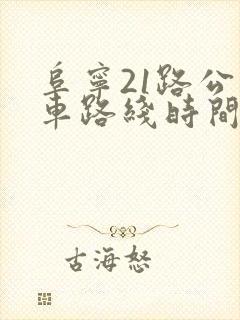 阜寧21路公
車路綫時間
古海怒